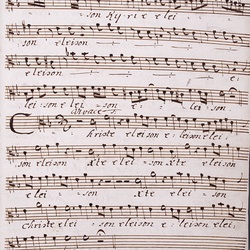 son Kyrie elei
son eleison
eleison e
leison eleison e leison
Vivace
Christe eleison eleison elei
son eleison Xte elei son Xte
elei son Xte elei son
Christe eleison eleison elei